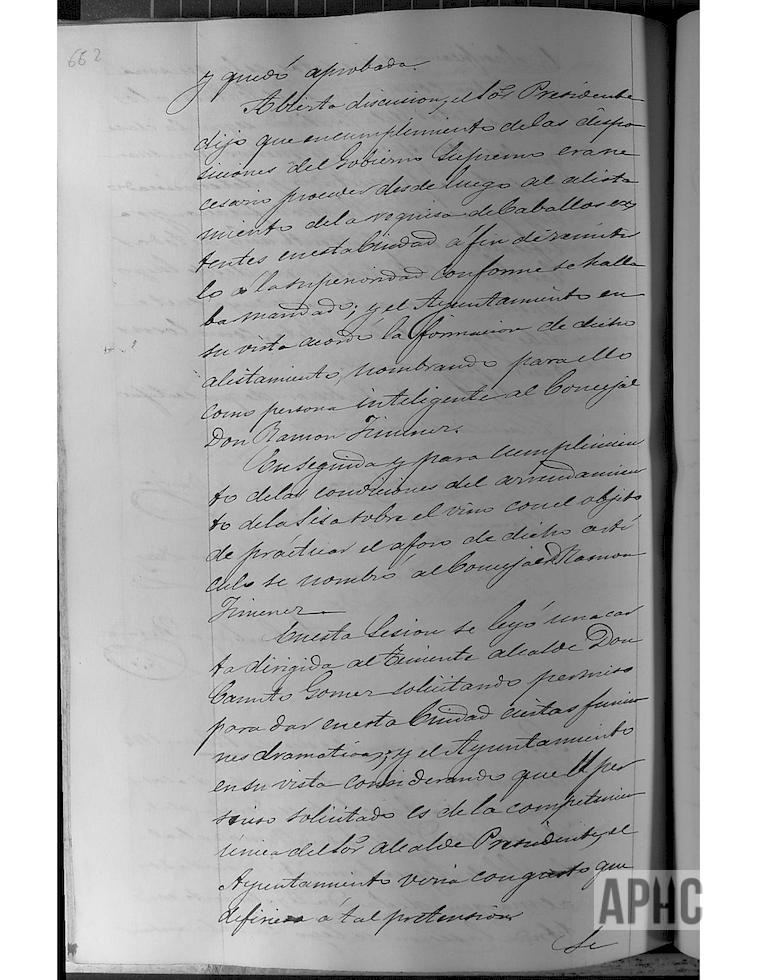 662
y quedó aprobada.
Abierta discusion, el Sor Presidente
dijo que en cumplimiento de las dispo
siciones del Gobierno Supremo era ne
cesario proceder desde luego al alista
miento de la requisa de Caballos exis
tentes en esta Ciudad á fin de remitir
lo a la superioridad conforme se halla
ba mandado; y el Ayuntamiento en
su vista acordó la formacion de dicho
alistamiento, nombrando para ello
como persona inteligente al Concejal
Don Ramon Jimenez.
En seguida y para cumplimien
to de las condiciones del arrendamien
to de la Sisa sobre el vino con el objeto
de prácticar el aforo de dicho artí
culo se nombró al Concejal Dn Ramon
Jimenez.
En esta Sesion se leyó una car
ta dirigida al Teniente alcalde Don
Camilo Gomez solicitando permiso
para dar en esta Ciudad ciertas funcio
nes dramaticas; y el Ayuntamiento
en su vista considerando que el per
miso solicitado es de la competencia
única del Sor alcalde Presidente, el
Ayuntamiento veria con gusto que
defiriese á tal pretension
Se
APHC